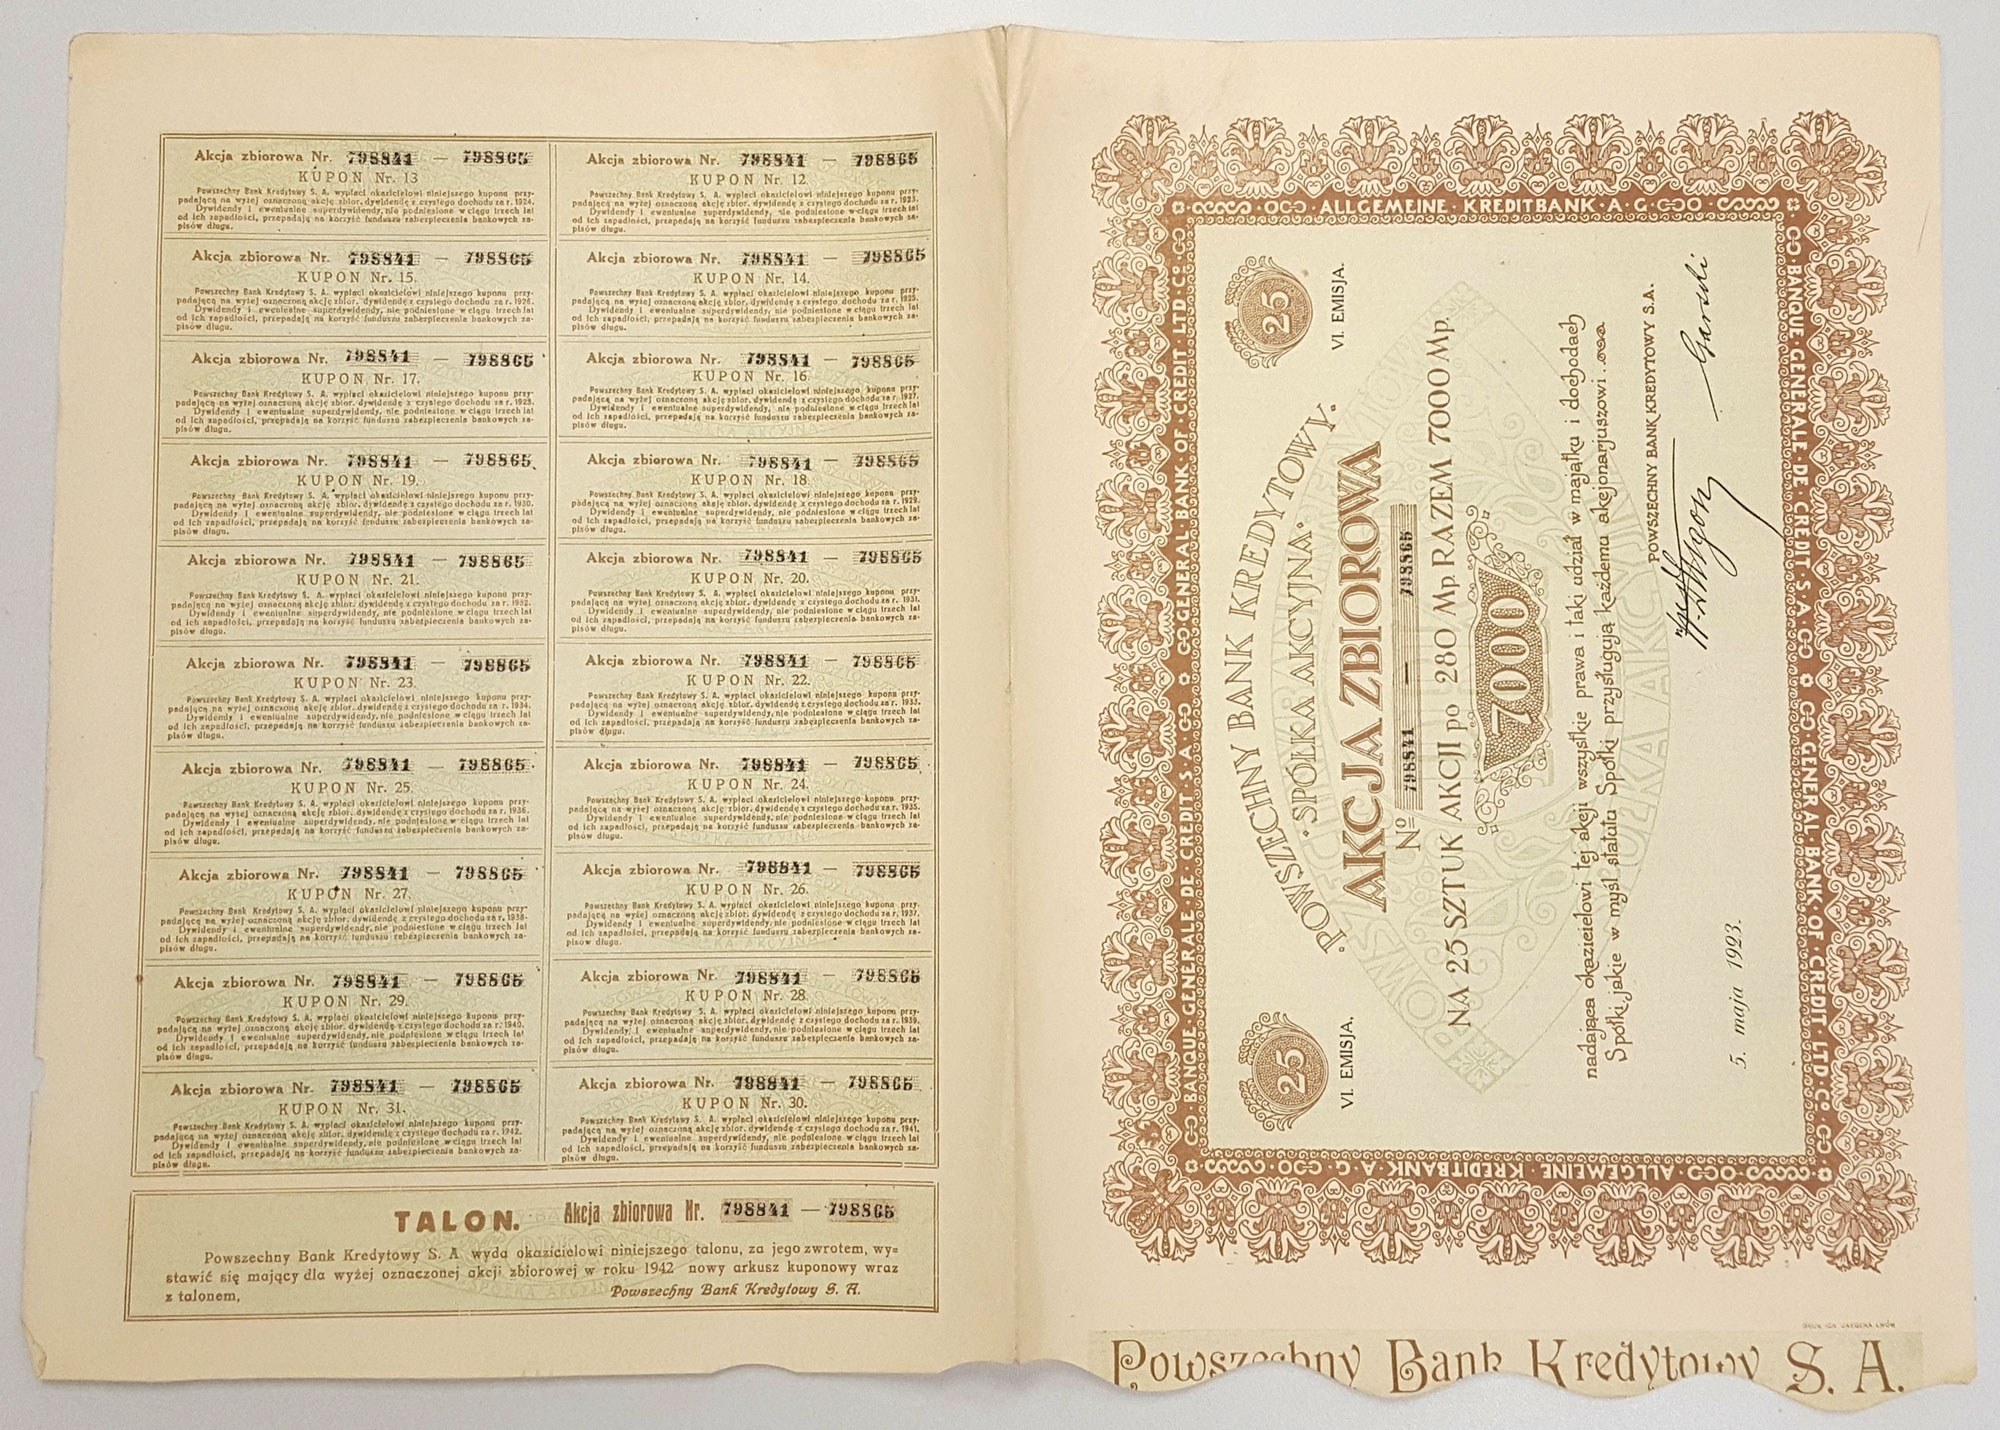 Akcja zbiorowa Nr. 798841 — 798865
KUPON Nr. 13
Powszechny Bank Kredytowy S. A. wypłaci okazicielowi niniejszego kuponu przy-
padającą na wyżej oznaczoną akcję zbior. dywidendę z czystego dochodu za r. 1924.
Dywidendy i ewentualne superdywidendy, nie podniesione w ciągu trzech lat
od ich zapadłości, przepadają na korzyść funduszu zabezpieczenia bankowych za-
pisów długu.
Akcja zbiorowa Nr. 798841 — 798865
KUPON Nr. 12.
Powszechny Bank Kredytowy S. A. wypłaci okazicielowi niniejszego kuponu przy-
padającą na wyżej oznaczoną akcję zbior. dywidendę z czystego dochodu za r. 1923.
Dywidendy i ewentualne superdywidendy, nie podniesione w ciągu trzech lat
od ich zapadłości, przepadają na korzyść funduszu zabezpieczenia bankowych za-
pisów długu.
Akcja zbiorowa Nr. 798841 — 798865
KUPON Nr. 15.
Powszechny Bank Kredytowy S. A. wypłaci okazicielowi niniejszego kuponu przy-
padającą na wyżej oznaczoną akcję zbior. dywidendę z czystego dochodu za r. 1926.
Dywidendy i ewentualne superdywidendy, nie podniesione w ciągu trzech lat
od ich zapadłości, przepadają na korzyść funduszu zabezpieczenia bankowych za-
pisów długu.
Akcja zbiorowa Nr. 798841 — 798865
KUPON Nr. 14.
Powszechny Bank Kredytowy S. A. wypłaci okazicielowi niniejszego kuponu przy-
padającą na wyżej oznaczoną akcję zbior. dywidendę z czystego dochodu za r. 1925.
Dywidendy i ewentualne superdywidendy, nie podniesione w ciągu trzech lat
od ich zapadłości, przepadają na korzyść funduszu zabezpieczenia bankowych za-
pisów długu.
Akcja zbiorowa Nr. 798841 — 798865
KUPON Nr. 17.
Powszechny Bank Kredytowy S. A. wypłaci okazicielowi niniejszego kuponu przy-
padającą na wyżej oznaczoną akcję zbior. dywidendę z czystego dochodu za r. 1928.
Dywidendy i ewentualne superdywidendy, nie podniesione w ciągu trzech lat
od ich zapadłości, przepadają na korzyść funduszu zabezpieczenia bankowych za-
pisów długu.
Akcja zbiorowa Nr. 798841 — 798865
KUPON Nr. 16.
Powszechny Bank Kredytowy S. A. wypłaci okazicielowi niniejszego kuponu przy-
padającą na wyżej oznaczoną akcję zbior. dywidendę z czystego dochodu za r. 1927.
Dywidendy i ewentualne superdywidendy, nie podniesione w ciągu trzech lat
od ich zapadłości, przepadają na korzyść funduszu zabezpieczenia bankowych za-
pisów długu.
Akcja zbiorowa Nr. 798841 — 798865
KUPON Nr. 19.
Powszechny Bank Kredytowy S. A. wypłaci okazicielowi niniejszego kuponu przy-
padającą na wyżej oznaczoną akcję zbior. dywidendę z czystego dochodu za r. 1930.
Dywidendy i ewentualne superdywidendy, nie podniesione w ciągu trzech lat
od ich zapadłości, przepadają na korzyść funduszu zabezpieczenia bankowych za-
pisów długu.
Akcja zbiorowa Nr. 798841 — 798865
KUPON Nr. 18.
Powszechny Bank Kredytowy S. A. wypłaci okazicielowi niniejszego kuponu przy-
padającą na wyżej oznaczoną akcję zbior. dywidendę z czystego dochodu za r. 1929.
Dywidendy i ewentualne superdywidendy, nie podniesione w ciągu trzech lat
od ich zapadłości, przepadają na korzyść funduszu zabezpieczenia bankowych za-
pisów długu.
Akcja zbiorowa Nr. 798841 — 798865
KUPON Nr. 21.
Powszechny Bank Kredytowy S. A. wypłaci okazicielowi niniejszego kuponu przy-
padającą na wyżej oznaczoną akcję zbior. dywidendę z czystego dochodu za r. 1932.
Dywidendy i ewentualne superdywidendy, nie podniesione w ciągu trzech lat
od ich zapadłości, przepadają na korzyść funduszu zabezpieczenia bankowych za-
pisów długu.
Akcja zbiorowa Nr. 798841 — 798865
KUPON Nr. 20.
Powszechny Bank Kredytowy S. A. wypłaci okazicielowi niniejszego kuponu przy-
padającą na wyżej oznaczoną akcję zbior. dywidendę z czystego dochodu za r. 1931.
Dywidendy i ewentualne superdywidendy, nie podniesione w ciągu trzech lat
od ich zapadłości, przepadają na korzyść funduszu zabezpieczenia bankowych za-
pisów długu.
Akcja zbiorowa Nr. 798841 — 798865
KUPON Nr. 23.
Powszechny Bank Kredytowy S. A. wypłaci okazicielowi niniejszego kuponu przy-
padającą na wyżej oznaczoną akcję zbior. dywidendę z czystego dochodu za r. 1934.
Dywidendy i ewentualne superdywidendy, nie podniesione w ciągu trzech lat
od ich zapadłości, przepadają na korzyść funduszu zabezpieczenia bankowych za-
pisów długu.
Akcja zbiorowa Nr. 798841 — 798865
KUPON Nr. 22.
Powszechny Bank Kredytowy S. A. wypłaci okazicielowi niniejszego kuponu przy-
padającą na wyżej oznaczoną akcję zbior. dywidendę z czystego dochodu za r. 1933.
Dywidendy i ewentualne superdywidendy, nie podniesione w ciągu trzech lat
od ich zapadłości, przepadają na korzyść funduszu zabezpieczenia bankowych za-
pisów długu.
Akcja zbiorowa Nr. 798841 — 798865
KUPON Nr. 25.
Powszechny Bank Kredytowy S. A. wypłaci okazicielowi niniejszego kuponu przy-
padającą na wyżej oznaczoną akcję zbior. dywidendę z czystego dochodu za r. 1936.
Dywidendy i ewentualne superdywidendy, nie podniesione w ciągu trzech lat
od ich zapadłości, przepadają na korzyść funduszu zabezpieczenia bankowych za-
pisów długu.
Akcja zbiorowa Nr. 798841 — 798865
KUPON Nr. 24.
Powszechny Bank Kredytowy S. A. wypłaci okazicielowi niniejszego kuponu przy-
padającą na wyżej oznaczoną akcję zbior. dywidendę z czystego dochodu za r. 1935.
Dywidendy i ewentualne superdywidendy, nie podniesione w ciągu trzech lat
od ich zapadłości, przepadają na korzyść funduszu zabezpieczenia bankowych za-
pisów długu.
Akcja zbiorowa Nr. 798841 — 798865
KUPON Nr. 27.
Powszechny Bank Kredytowy S. A. wypłaci okazicielowi niniejszego kuponu przy-
padającą na wyżej oznaczoną akcję zbior. dywidendę z czystego dochodu za r. 1938.
Dywidendy i ewentualne superdywidendy, nie podniesione w ciągu trzech lat
od ich zapadłości, przepadają na korzyść funduszu zabezpieczenia bankowych za-
pisów długu.
Akcja zbiorowa Nr. 798841 — 798865
KUPON Nr. 26.
Powszechny Bank Kredytowy S. A. wypłaci okazicielowi niniejszego kuponu przy-
padającą na wyżej oznaczoną akcję zbior. dywidendę z czystego dochodu za r. 1937.
Dywidendy i ewentualne superdywidendy, nie podniesione w ciągu trzech lat
od ich zapadłości, przepadają na korzyść funduszu zabezpieczenia bankowych za-
pisów długu.
Akcja zbiorowa Nr. 798841 — 798865
KUPON Nr. 29.
Powszechny Bank Kredytowy S. A. wypłaci okazicielowi niniejszego kuponu przy-
padającą na wyżej oznaczoną akcję zbior. dywidendę z czystego dochodu za r. 1940.
Dywidendy i ewentualne superdywidendy, nie podniesione w ciągu trzech lat
od ich zapadłości, przepadają na korzyść funduszu zabezpieczenia bankowych za-
pisów długu.
Akcja zbiorowa Nr. 798841 — 798865
KUPON Nr. 28.
Powszechny Bank Kredytowy S. A. wypłaci okazicielowi niniejszego kuponu przy-
padającą na wyżej oznaczoną akcję zbior. dywidendę z czystego dochodu za r. 1939.
Dywidendy i ewentualne superdywidendy, nie podniesione w ciągu trzech lat
od ich zapadłości, przepadają na korzyść funduszu zabezpieczenia bankowych za-
pisów długu.
Akcja zbiorowa Nr. 798841 — 798865
KUPON Nr. 31.
Powszechny Bank Kredytowy S. A. wypłaci okazicielowi niniejszego kuponu przy-
padającą na wyżej oznaczoną akcję zbior. dywidendę z czystego dochodu za r. 1942.
Dywidendy i ewentualne superdywidendy, nie podniesione w ciągu trzech lat
od ich zapadłości, przepadają na korzyść funduszu zabezpieczenia bankowych za-
pisów długu.
Akcja zbiorowa Nr. 798841 — 798865
KUPON Nr. 30.
Powszechny Bank Kredytowy S. A. wypłaci okazicielowi niniejszego kuponu przy-
padającą na wyżej oznaczoną akcję zbior. dywidendę z czystego dochodu za r. 1941.
Dywidendy i ewentualne superdywidendy, nie podniesione w ciągu trzech lat
od ich zapadłości, przepadają na korzyść funduszu zabezpieczenia bankowych za-
pisów długu.
TALON. Akcja zbiorowa Nr. 798841 — 798865
Powszechny Bank Kredytowy S. A wyda okazicielowi niniejszego talonu, za jego zwrotem, wy=
stawić się mający dla wyżej oznaczonej akcji zbiorowej w roku 1942 nowy arkusz kuponowy wraz
z talonem,
Powszechny Bank Kredytowy S. A.
BANQUE GENERALE DE CREDIT S. A. GENERAL BANK OF CREDIT LTD Co
ALLGEMEINE KREDITBANK A. G.
ALLGEMEINE KREDITBANK A. G.
BANQUE GENERALE DE CREDIT S. A. GENERAL BANK OF CREDIT LTD Co
25
VI. EMISJA.
25
VI. EMISJA.
POWSZECHNY BANK KREDYTOWY.
SPÓŁKA AKCYJNA
AKCJA ZBIOROWA
No 798841 — 798865
NA 25 SZTUK AKCJI po 280 Mp. RAZEM 7000 Mp.
7000
nadająca okazicielowi tej akcji wszystkie prawa i taki udział w majątku i dochodach
Spółki, jakie w myśl statutu Spółki przysługują każdemu akcjonarjuszowi
POWSZECHNY BANK KREDYTOWY S.A.
5. maja 1923.
DRUK IGN. JAEGERA LWÓW
Powszechny Bank Kredytowy S. A.